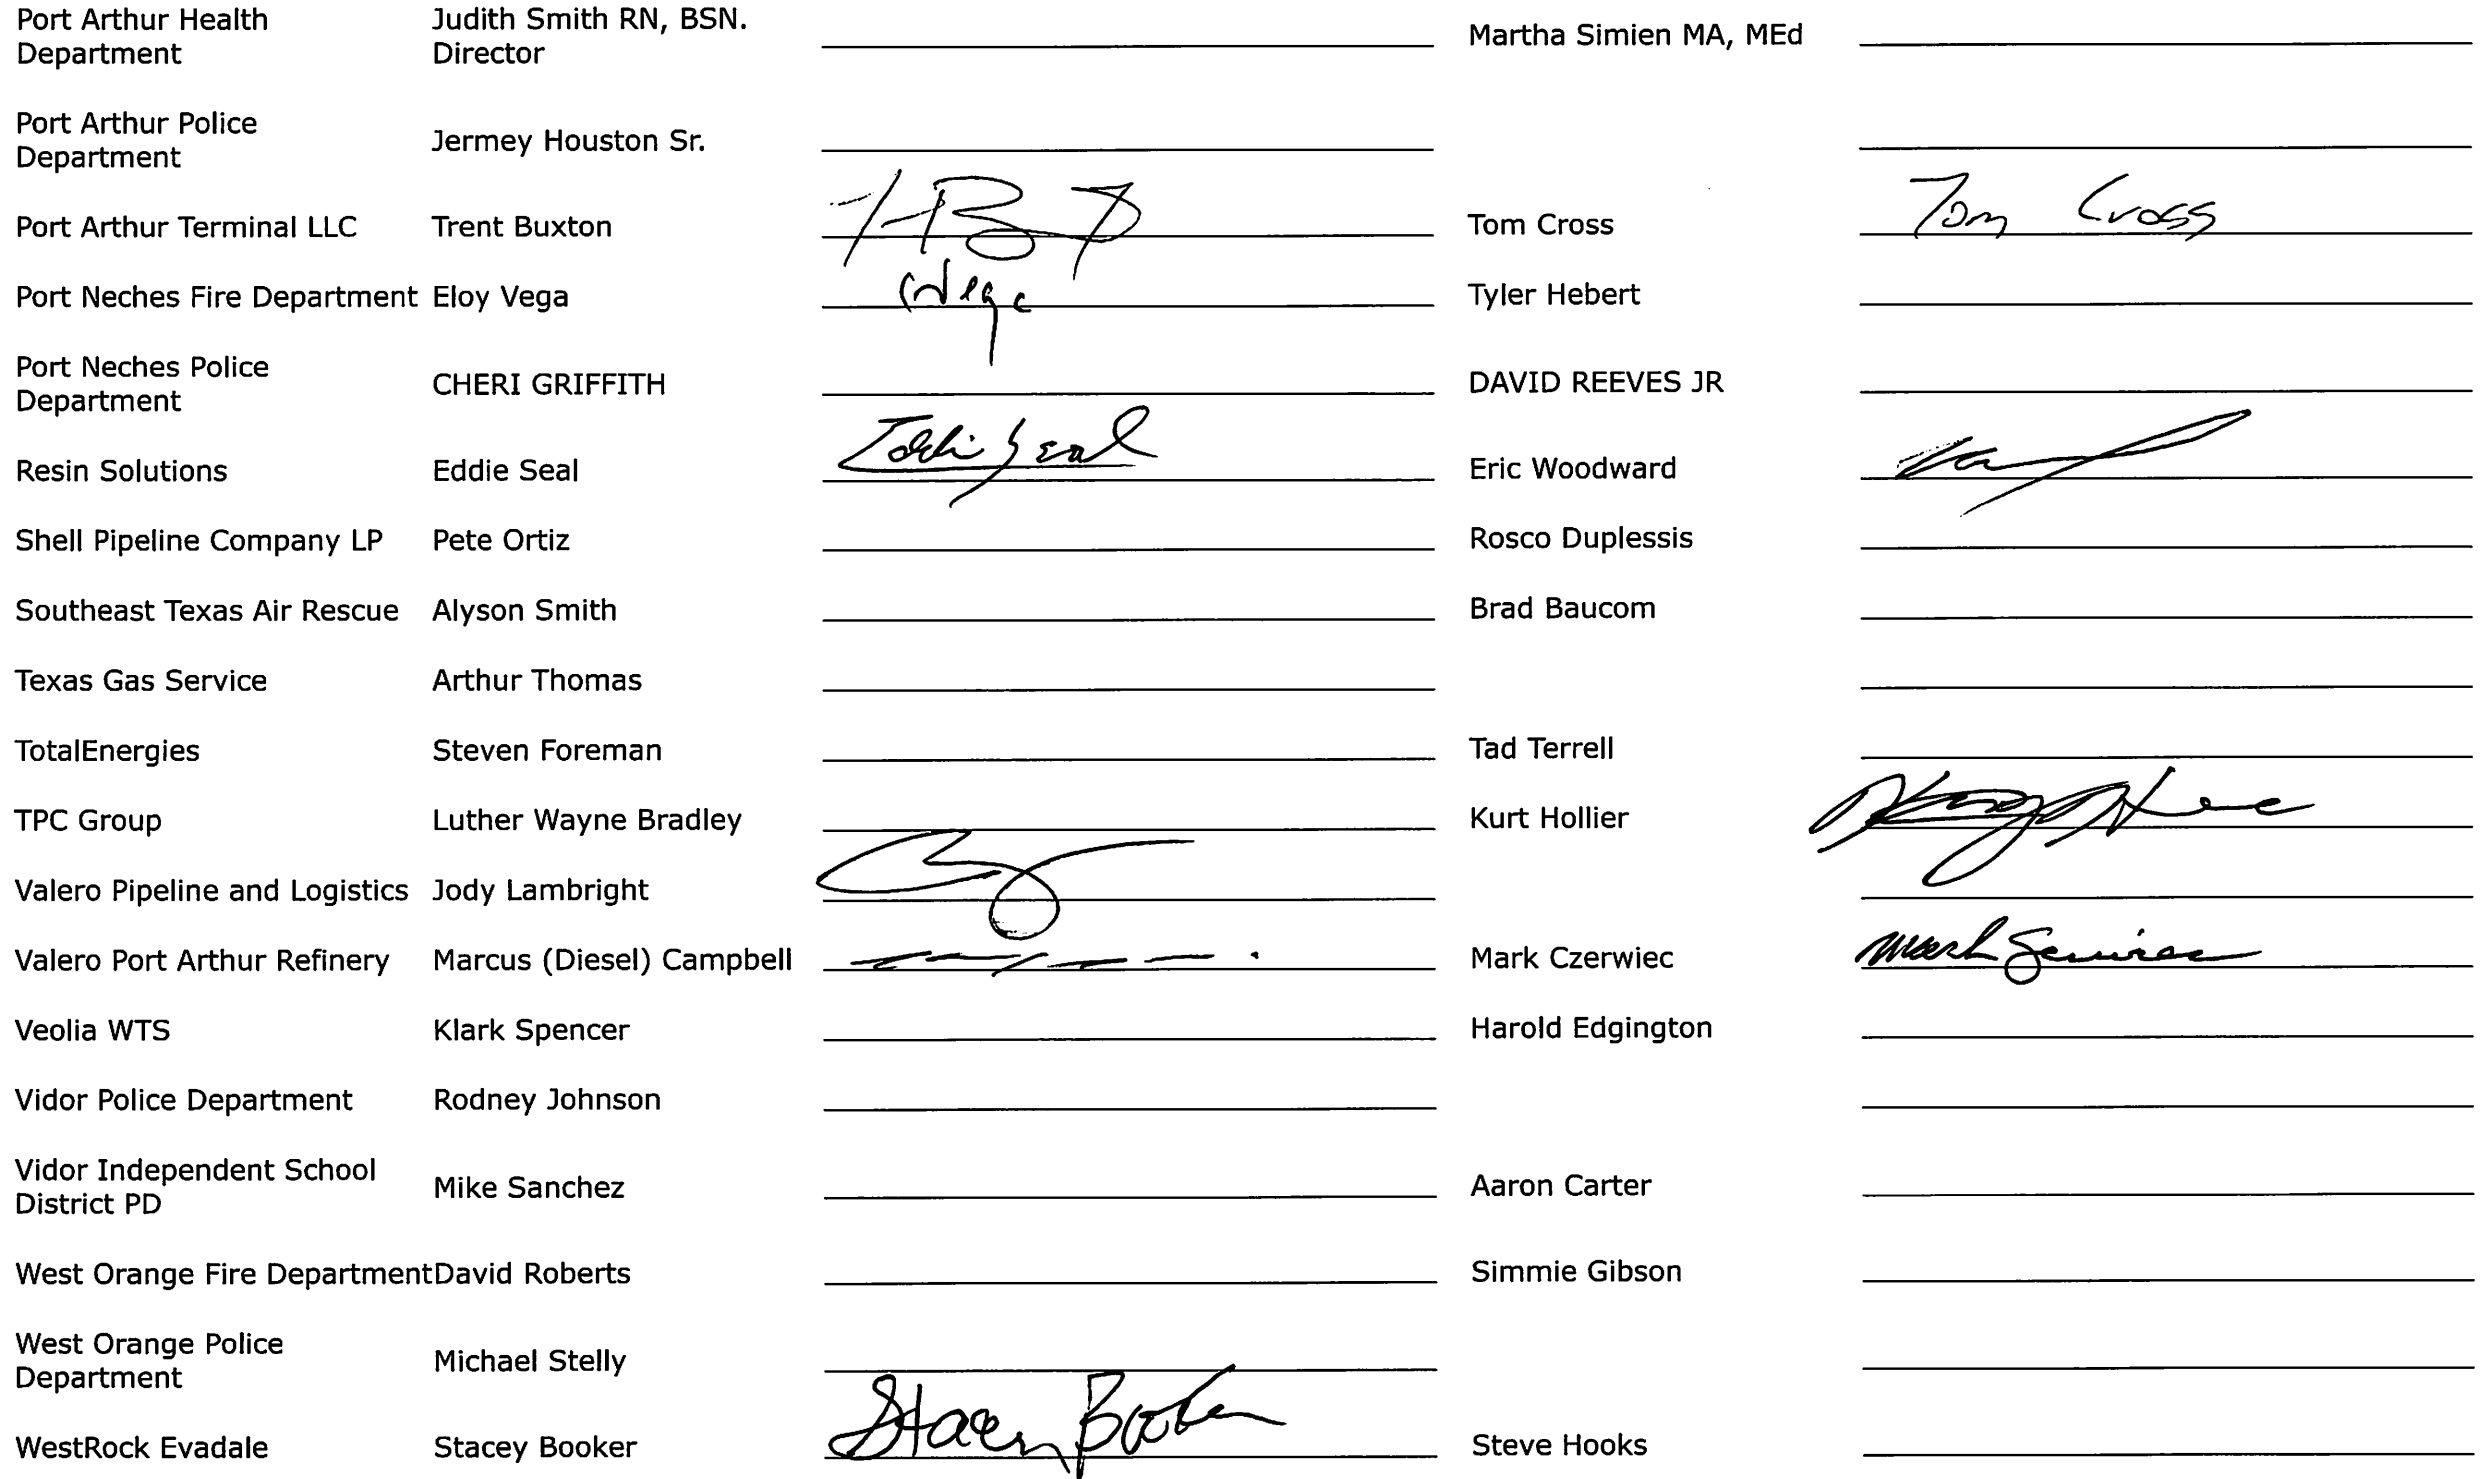 Port Arthur Health Department Judith Smith RN, BSN. Director Martha Simien MA, MEd
Port Arthur Police Department Jermey Houston Sr.
Port Arthur Terminal LLC Trent Buxton Tom Cross Tom Cross
Port Neches Fire Department Eloy Vega Vega Tyler Hebert
Port Neches Police Department CHERI GRIFFITH DAVID REEVES JR
Resin Solutions Eddie Seal Eddie Seal Eric Woodward
Shell Pipeline Company LP Pete Ortiz Rosco Duplessis
Southeast Texas Air Rescue Alyson Smith Brad Baucom
Texas Gas Service Arthur Thomas
TotalEnergies Steven Foreman Tad Terrell
TPC Group Luther Wayne Bradley Kurt Hollier
Valero Pipeline and Logistics Jody Lambright
Valero Port Arthur Refinery Marcus (Diesel) Campbell Mark Czerwiec Mark Czerwiec
Veolia WTS Klark Spencer Harold Edgington
Vidor Police Department Rodney Johnson
Vidor Independent School District PD Mike Sanchez Aaron Carter
West Orange Fire Department David Roberts Simmie Gibson
West Orange Police Department Michael Stelly
WestRock Evadale Stacey Booker Stacey Booker Steve Hooks